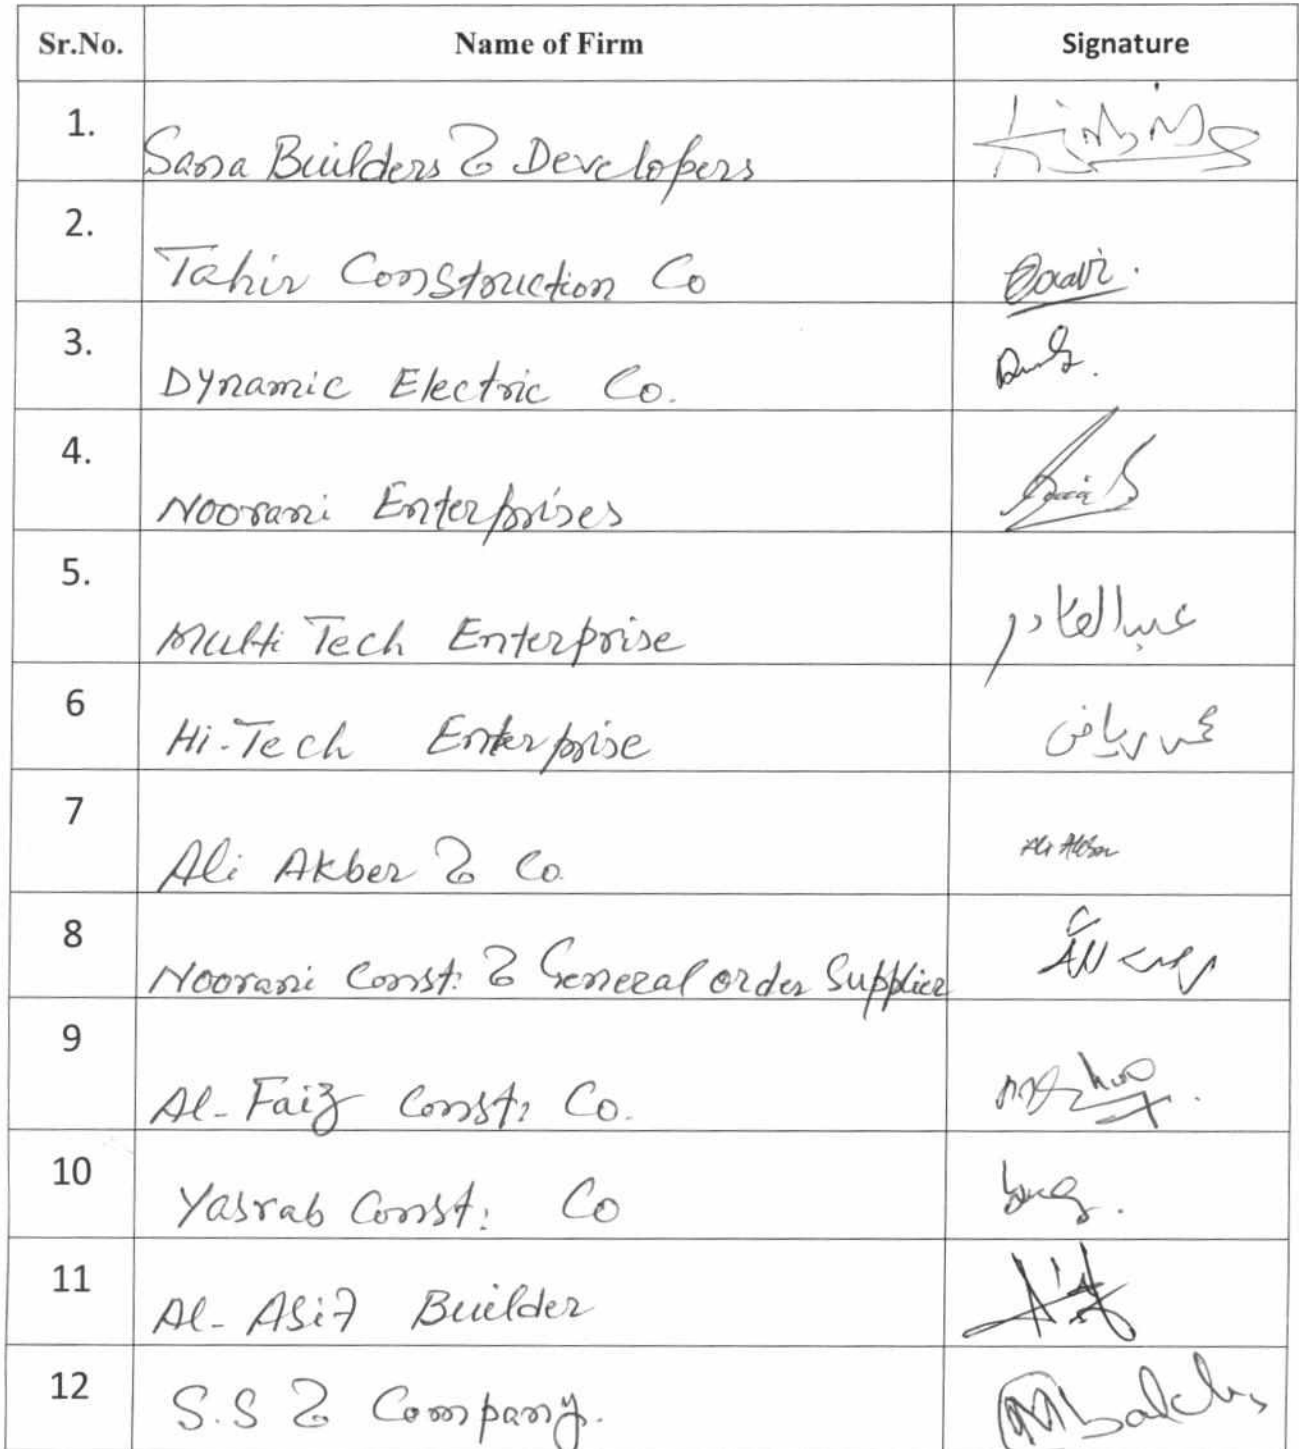 Sr.No. Name of Firm Signature
1. Sana Builders & Developers
2. Tahir Construction Co
3. Dynamic Electric Co.
4. Noorani Enterprises
5. Multi Tech Enterprise عبدالقادر
6 Hi-Tech Enterprise محمد رياض
7 Ali Akber & Co. Ali Akber
8 Noorani Const: & General order Supplier
9 Al-Faiz Const: Co.
10 Yasrab Const: Co
11 Al-Asif Builder
12 S.S & Company.